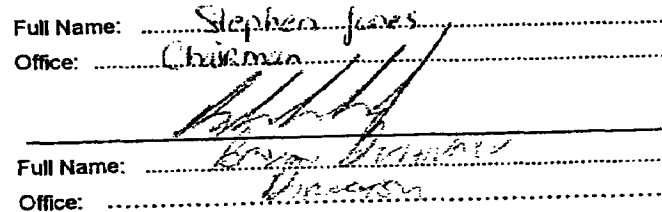 Full Name: Stephen Jones
Office: Chairman
Full Name:
Office: Director